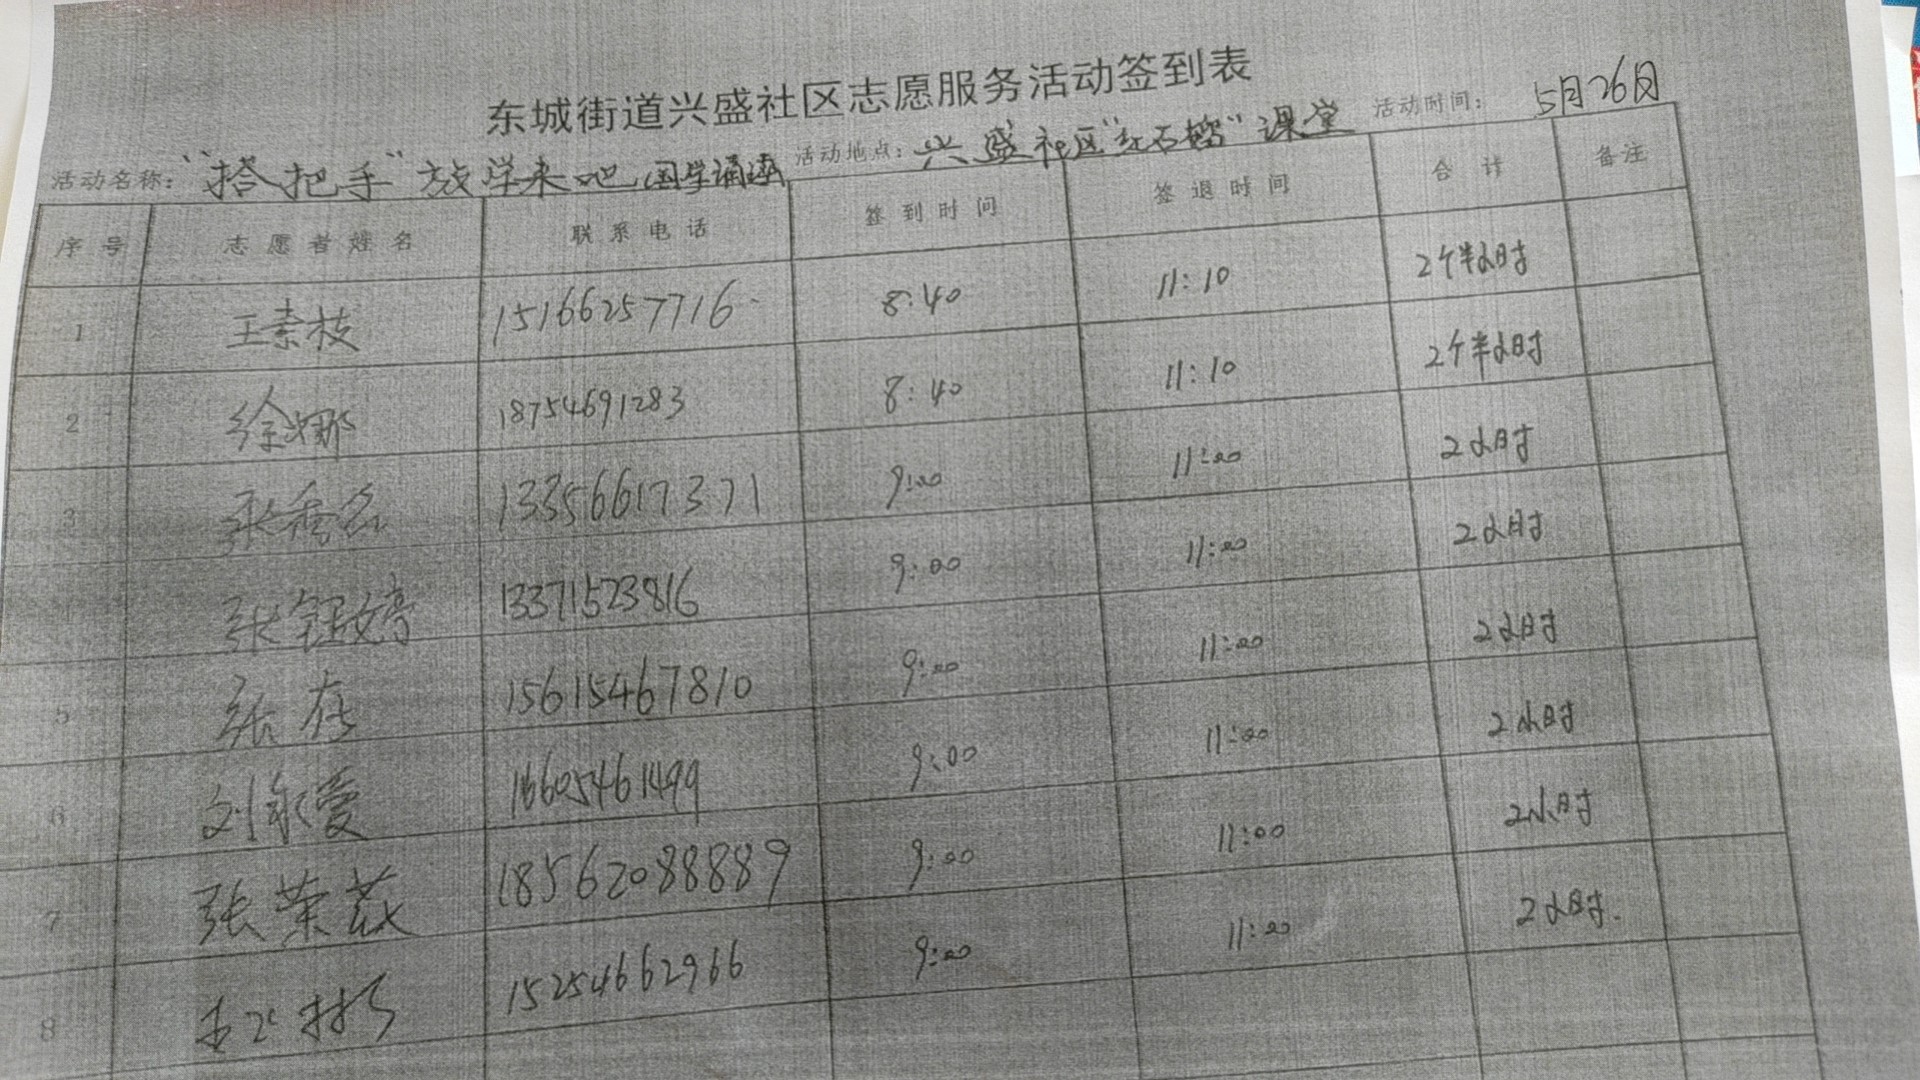 东城街道兴盛社区志愿服务活动签到表
活动名称：“搭把手”放学来吧 国学诵读 活动地点：兴盛社区“红石榴”课堂 活动时间：5月26日
序号 志愿者姓名 联系电话 签到时间 签退时间 合计 备注
1 王素枝 15166257716 8:40 11:10 2个半小时
2 徐娜 18754691283 8:40 11:10 2个半小时
3 张 13356617371 9:00 11:00 2小时
张钰婷 13371523816 9:00 11:00 2小时
5 张存 15615467810 9:00 11:00 2小时
6 刘永爱 16605461499 9:00 11:00 2小时
7 张荣 18562088889 9:00 11:00 2小时
8 15254662966 9:00 11:00 2小时